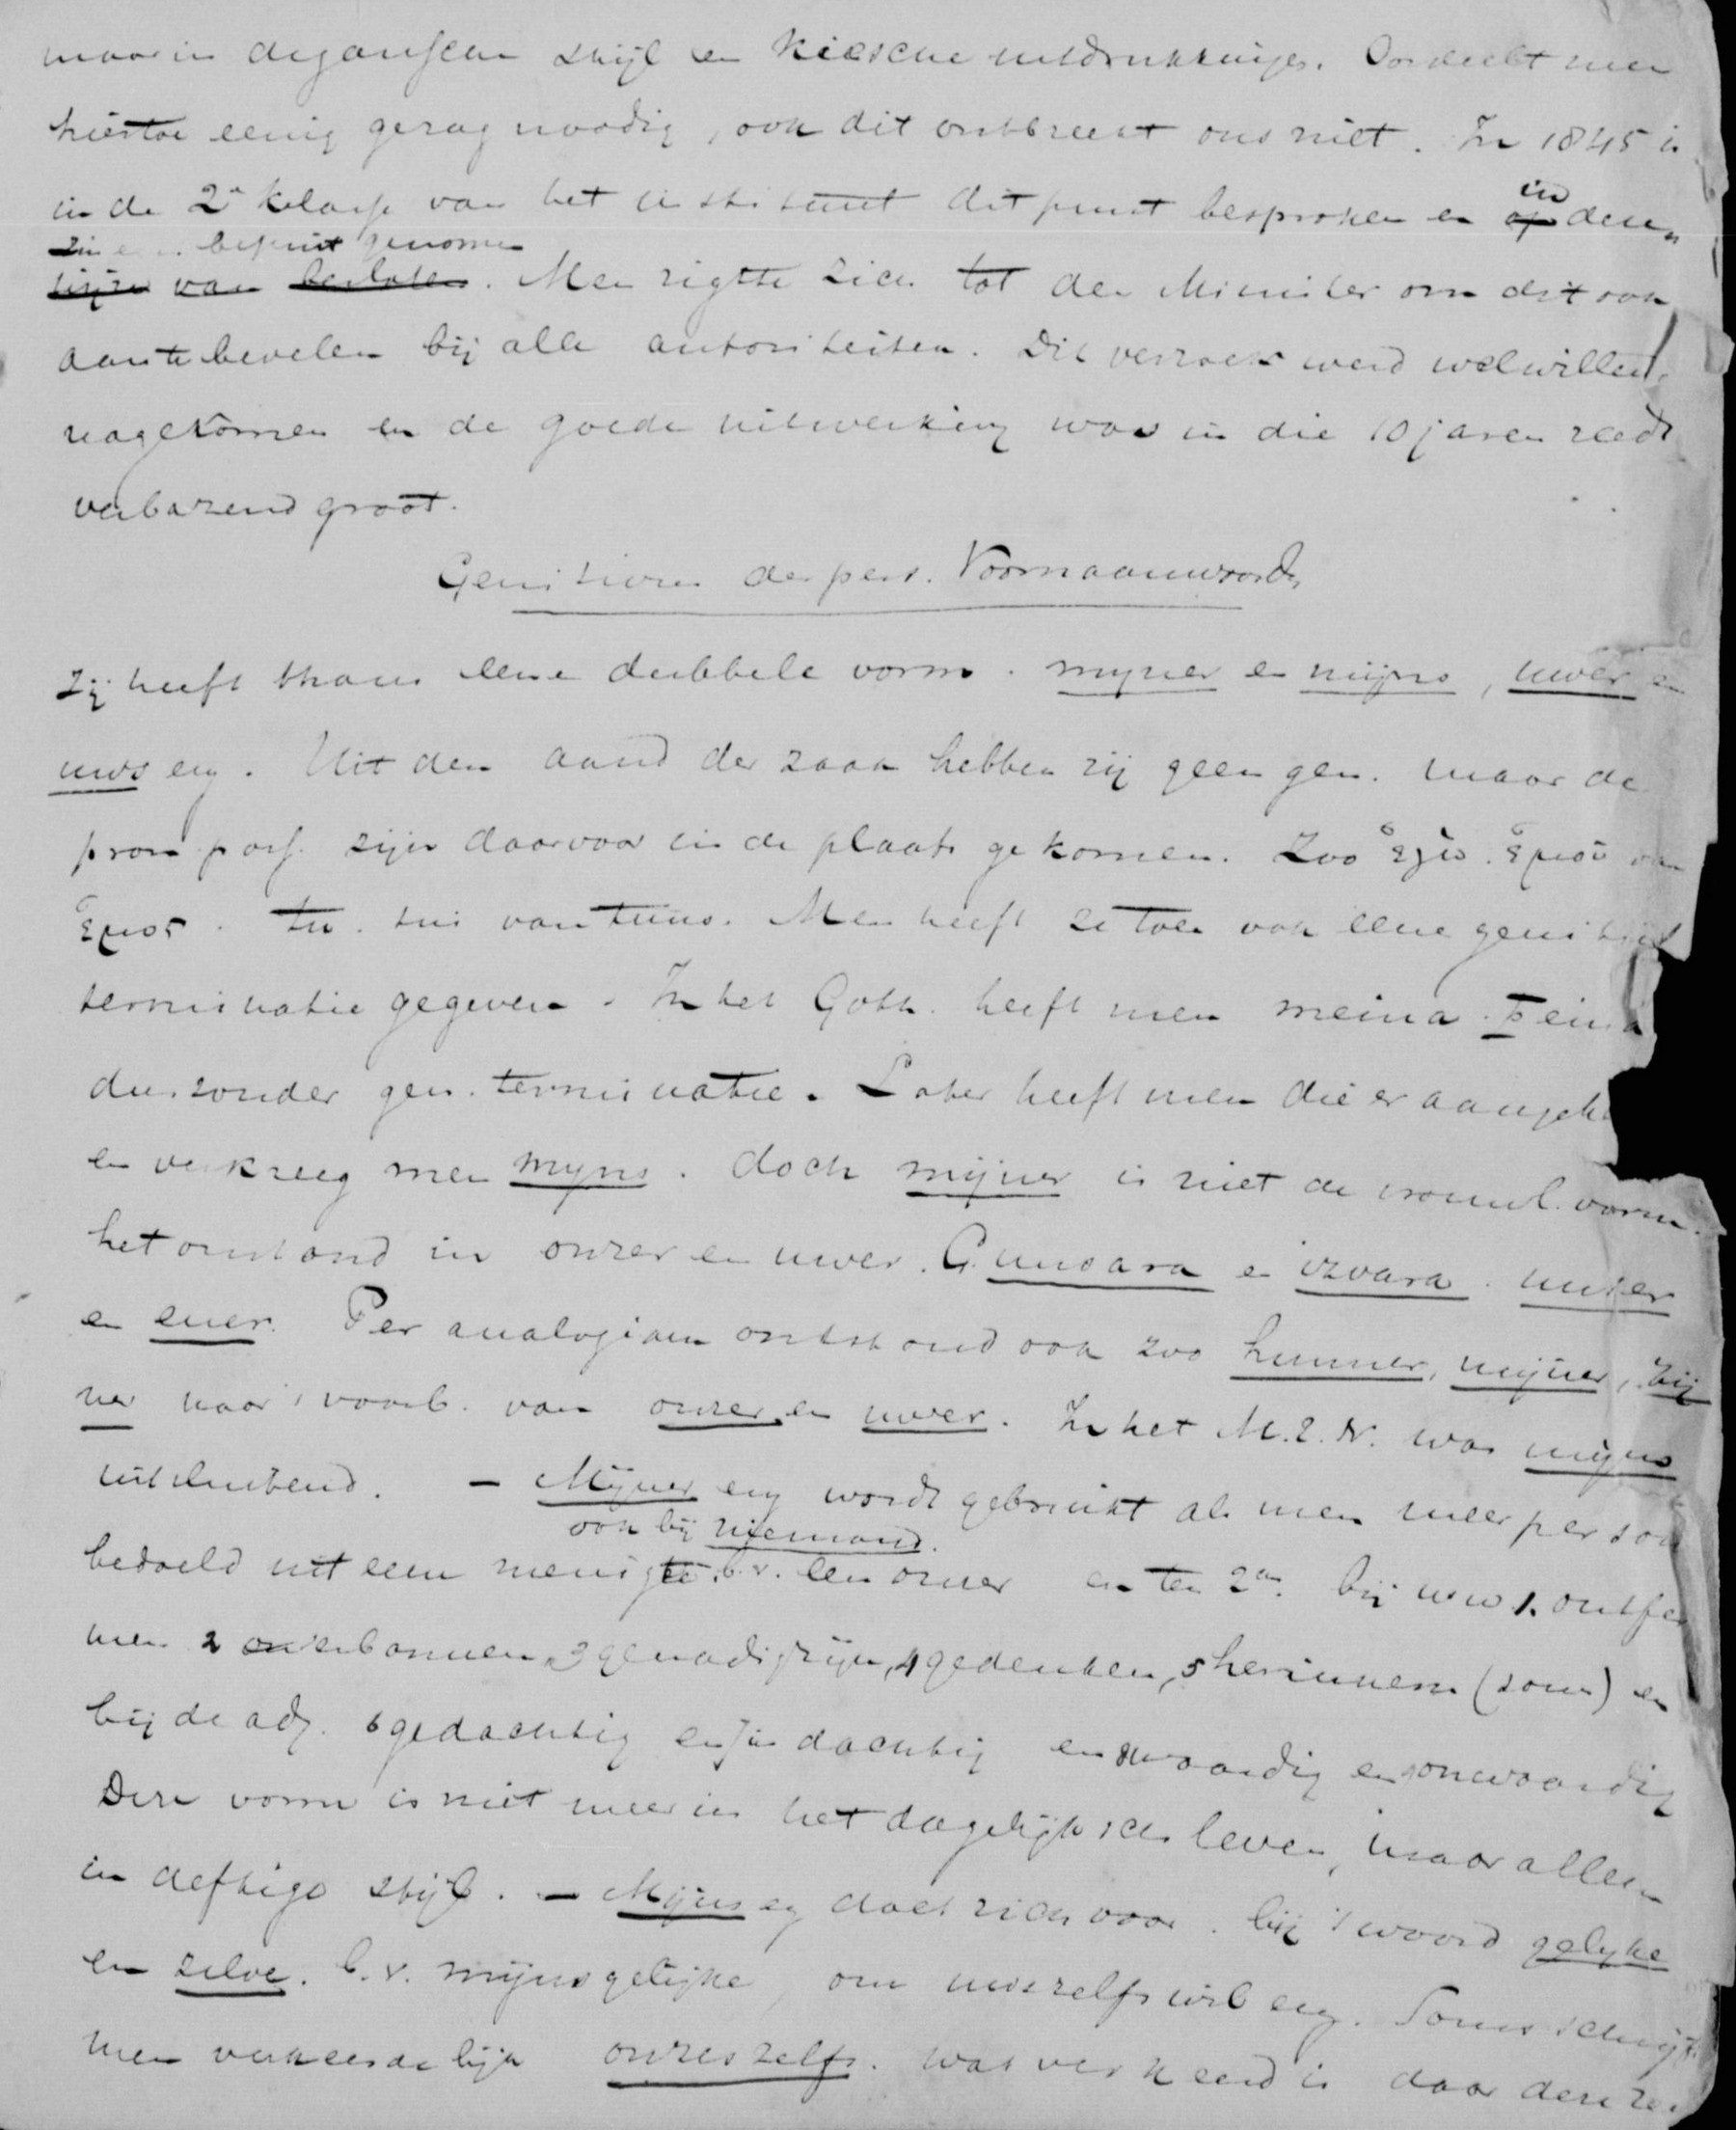 maar in deganschen stijl en kiesche uitdrukkingen. Oordeelt men
hiertoe eenig gezag noodig, ook dit ontbreekt ons niet. In 1845 is
in de 2e klasse van het instituut dit punt besproken en in deze
besluit genomen
van besloten. Men rigtte zich tot den Minister om dit ook
aantebevelen bij alle autoriteiten. Dit verzoek werd welwillend
nagekomen en de goede uitwerking was in die 10 jaren reeds
verbazend groot.
Genitiven der pers. Voornaamwoorden
Zij heeft thans eene dubbele vorm. mijner en mijns, uwer en
uws enz. Uit den aard der zaak hebben zij geen gen. maar de
pron. poss. zijn daarvoor in de plaats gekomen. Zoo ἐγώ. ἐμοῦ van
ἐμος. tu. tui van tuus. Men heeft ze toen ook eene genitief
terminatie gegeven. In het Goth. heeft men meina. þeina
dus zonder gen. terminatie. Later heeft men die er aangeh
en verkreeg men mijns. doch mijner is niet de vrouwl. vorm.
het ontstond in onzer en uwer. G. unsara en izvara. unser
en euer. Per analogiam ontstond ook zoo hunner, mijner, zij
ner naar 't voorb. van onzer en uwer. In het M.E.N. was mijns
uitsluitend. – Mijner enz wordt gebruikt als men meer person
ook bij niemand.
bedoeld uit eene menigte. b.v. een onzer en ten 2en. bij ww 1. ontfer
men 2 erbarmen, 3 genadig zijn, 4 gedenken, 5 herinneren (soms) en
bij de adj. 6 gedachtig en 7 indachtig en 8 waardig en 9 onwaardig
Deze vorm is niet meer in het dagelijksch leven, maar alleen
in deftige stijl. – Mijns enz doet zich voor. bij 't woord gelijke
en zelve. b.v. mijnsgelijke, om uwszelfs wil enz. Soms schrijft
men verkeerdelijk onzeszelfs. wat verkeerd is daar deze